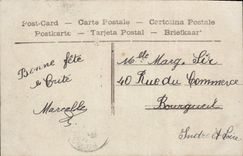 Post-Card - Carte Postale - Cartolina Postale
Postkarte - Tarjeta Postal - Briefkaart
Bonne fête
Marcelle
Mlle Marg. Sir
40 Rue du Commerce
Bourgueil
Indre et Loire